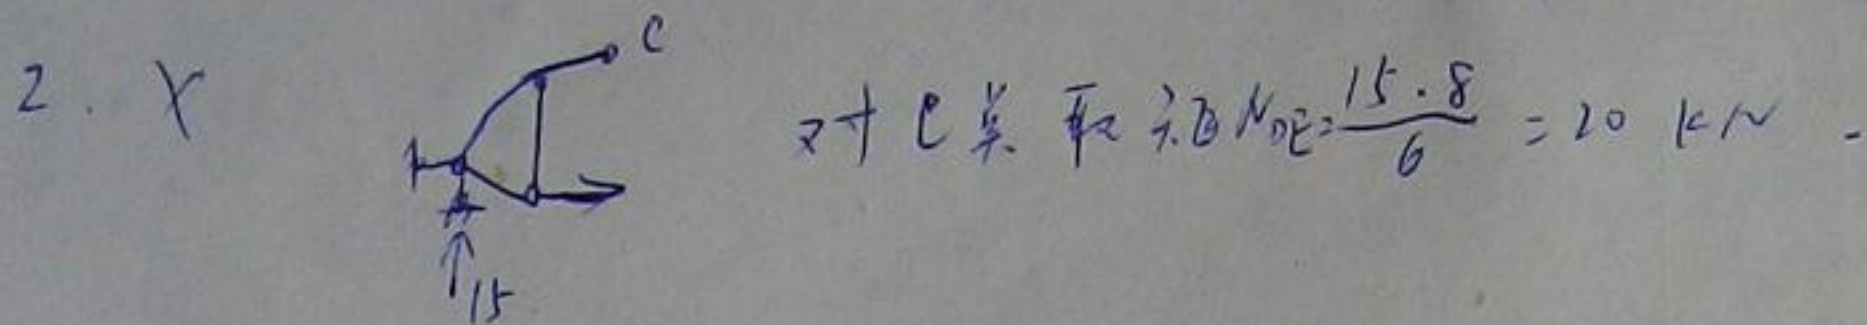 2. X
C
对C点取矩 N_{DE}=\frac{15·8}{6}=20 KN.
15